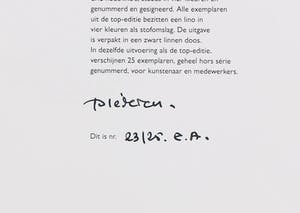 genummerd en gesigneerd. Alle exemplaren
uit de top-editie bezitten een lino in
vier kleuren als stofomslag. De uitgave
is verpakt in een zwart linnen doos.
In dezelfde uitvoering als de top-editie,
verschijnen 25 exemplaren, geheel hors série
genummerd, voor kunstenaar en medewerkers.
Dit is nr. 23/25. e.A.